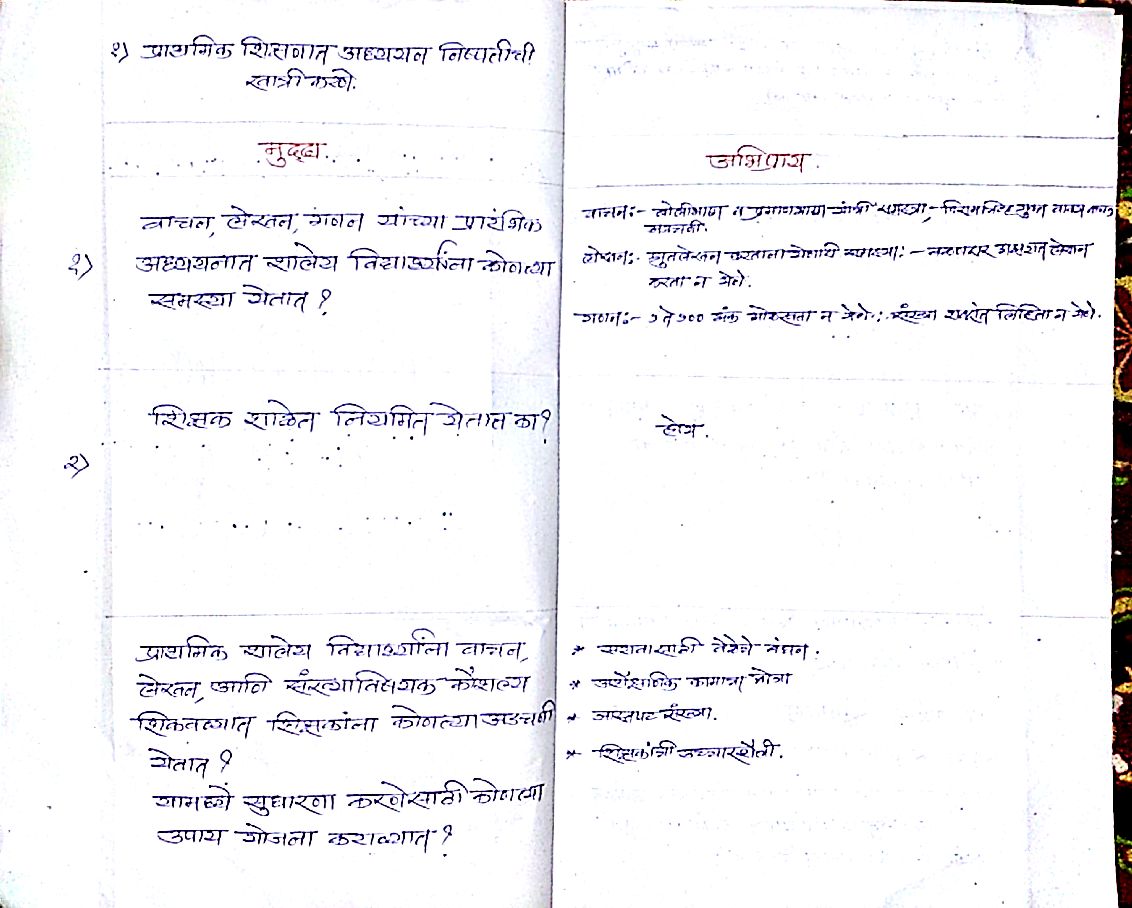 १) प्राथमिक शिक्षणात अध्ययन निष्पतीची
खात्री करणे.
मुद्दा.
अभिप्राय.
वाचन, लेखन, गणन यांच्या प्रारंभिक
१) अध्ययनात शालेय विद्यार्थ्यांना कोणत्या
समस्या येतात ?
वाचन:- बोलीभाषा व प्रमाणभाषा यांची समस्या,
लेखन:- श्रुतलेखन करताना येणारी समस्या:- लेखन
करता न येणे.
गणन:- १ ते १०० अंक ओळखता न येणे. संख्या अक्षरांत लिहिता न येणे.
२) शिक्षक शाळेत नियमित येतात का?
होय.
प्राथमिक शालेय विद्यार्थ्यांना वाचन,
लेखन, आणि संख्याविषयक कौशल्य
शिकवण्यात शिक्षकांना कोणत्या अडचणी
येतात ?
यामध्ये सुधारणा करणेसाठी कोणत्या
उपाय योजना कराव्यात ?
* सरावासाठी वेळेचे बंधन.
* अशैक्षणिक कामाचा बोजा
* जास्त पट संख्या.
* शिक्षकांची